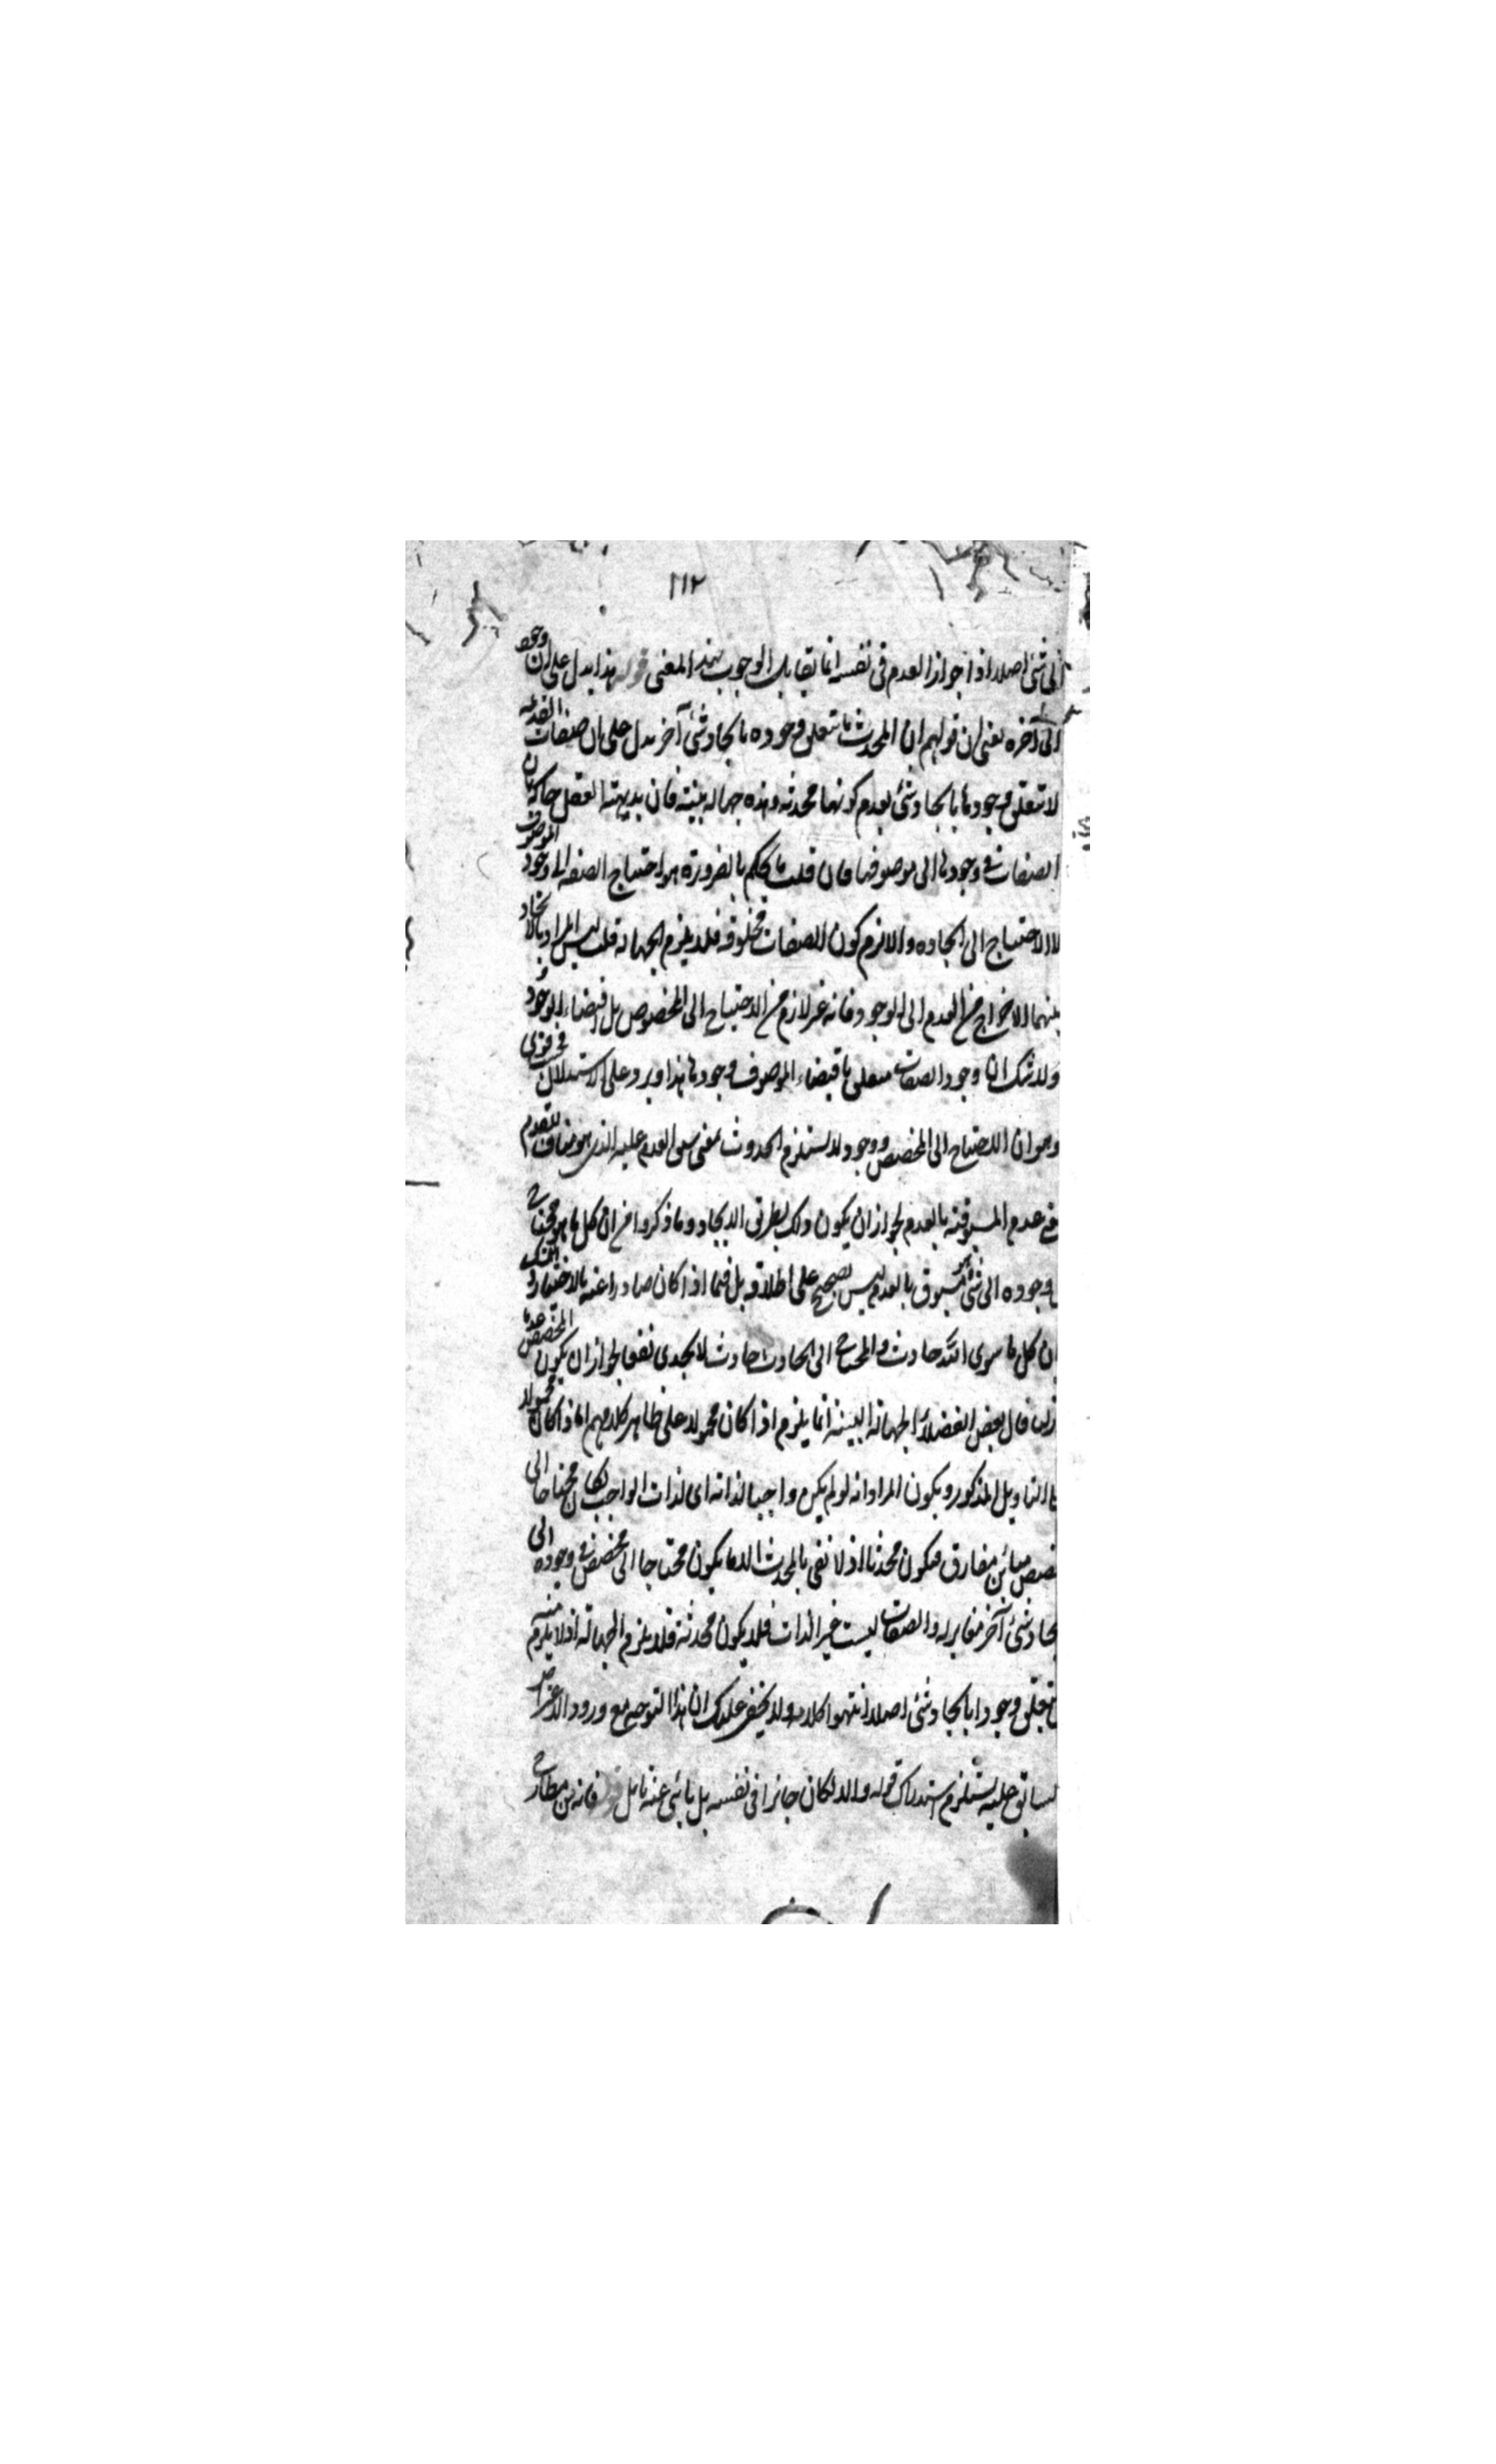 ١١٢
الى شئ اصلا اذا جواز العدم فى نفسه انما يقابل الوجوب بهذا المعنى قوله هذا يدل على ان وجود
الى آخره يعنى ان قولهم ان المحدث ما يتعلق وجوده بايجاد شئ آخر يدل على ان صفات القديمة
لا تتعلق وجودها بايجاد شئ لعدم كونها محدثة وهذه جهالة بينة فان بديهة العقل حاكمة بان
الصفات فى وجودها الى موصوفها فان قلت ما يحكم بالضرورة هو احتياج الصفة الى وجود الموصوف
لا الاحتياج الى ايجاده والا لزم كون الصفات مخلوقة فلا يلزم الجهالة قلت ليس المراد بالايجاد
ههنا الاخراج من العدم الى الوجود فانه غير لازم من الاحتياج الى المخصوص بل اقتضاء الوجود
ولا شك ان وجود الصفات متعلق باقتضاء الموصوف وجودها هذا ويرد على الاستدلال بحث قوى
وهو ان الاحتياج الى المخصص وجود لا يستلزم الحدوث بمعنى سبق العدم عليه الذى هو مناف للقدم
عدم المسبوقية بالعدم لجواز ان يكون ذلك بطريق الايجاد وما ذكروا من ان كل ما هو محتاج
وجوده الى شئ مسبوق بالعدم ليس بصحيح على اطلاقه بل فيما اذا كان صادرا عنه بالاختيار
ان كل ما سوى الله حادث والمحتاج الى الحادث حادث لا يجدى نفعا لجواز ان يكون المخصص
قال بعض الفضلاء الجهالة البينة انما يلزم اذا كان محمولا على ظاهر كلامهم اما اذا كان محمولا
التاويل المذكور ويكون المراد انه لو لم يكن واجبا لذاته اى لذات الواجب لكان محتاجا الى
مخصص مبائن مفارق فيكون محدثا اذ لا نعنى بالمحدث الا ما يكون محتاجا الى مخصص فى وجوده الى
ايجاد شئ آخر مغاير له والصفات ليست غير الذات فلا يكون محدثة فلا يلزم الجهالة اذ لا يلزم منه
تعلق وجودها بايجاد شئ اصلا انتهى كلامه ولا يخفى عليك ان هذا التوجيه مع ورود الاعتراض
السابق عليه يستلزم استدراك قوله والا لكان جائزا فى نفسه بل يابى عنه تامل قوله فانه من